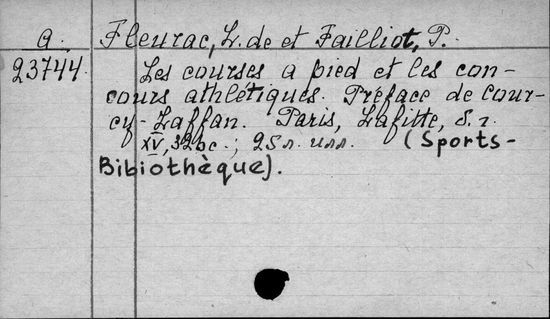 a. Fleurac, L. de et Failliot, P.
23744. Les courses a pied et les con-
cours athlétiques. Préface de Cour-
cy-Laffan. Paris, Lafitte, s.
XV, 32 c.; 25
(Sports-
Bibiothèque).